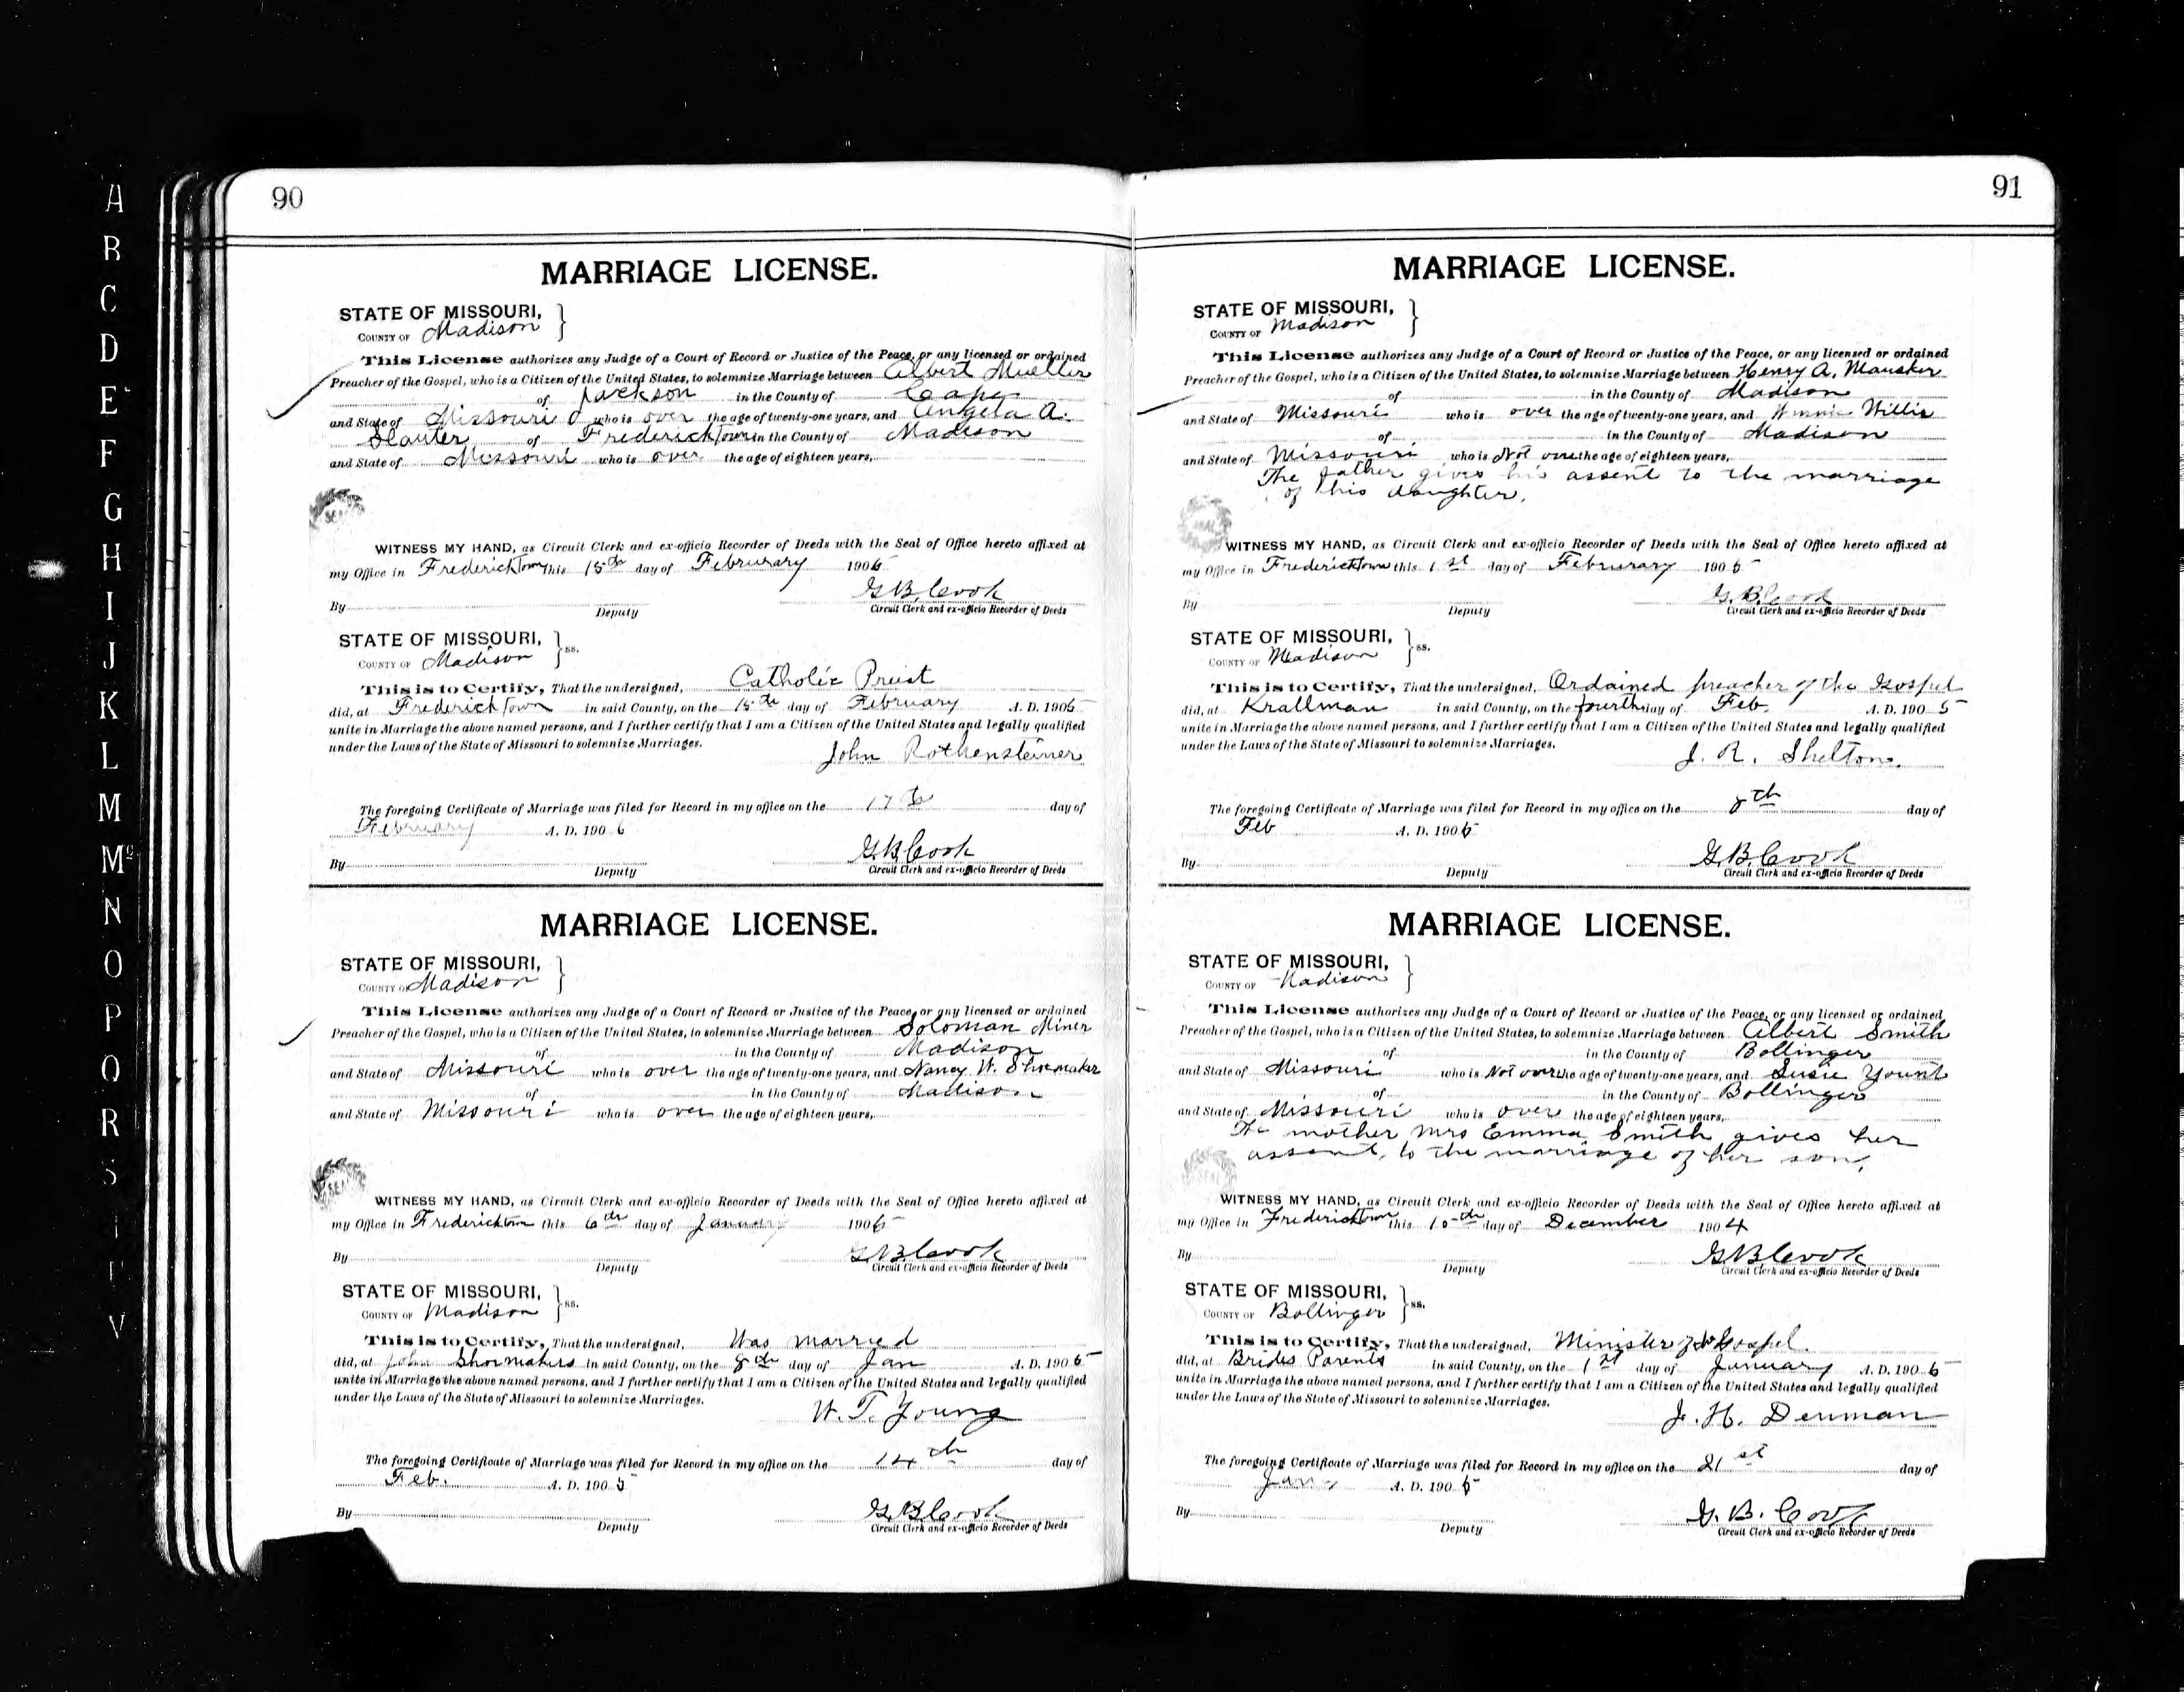 A
B
C
D
E
F
G
H
I
J
K
L
M
Mc
N
O
P
Q
R
S
T
V
90
MARRIAGE LICENSE.
STATE OF MISSOURI,
COUNTY OF Madison
This License authorizes any Judge of a Court of Record or Justice of the Peace, or any licensed or ordained
Preacher of the Gospel, who is a Citizen of the United States, to solemnize Marriage between Albert Mueller
of Jackson in the County of Cape
and State of Missouri who is over the age of twenty-one years, and Angela A.
Slauter of Fredericktown in the County of Madison
and State of Missouri who is over the age of eighteen years,
SEAL
WITNESS MY HAND, as Circuit Clerk and ex-officio Recorder of Deeds with the Seal of Office hereto affixed at
my Office in Fredericktown this 15th day of Februrary 1905
G.B. Cook
By Deputy Circuit Clerk and ex-officio Recorder of Deeds
STATE OF MISSOURI,
COUNTY OF Madison ss.
This is to Certify, That the undersigned, Catholic Priest
did, at Fredericktown in said County, on the 15th day of February A. D. 1905
unite in Marriage the above named persons, and I further certify that I am a Citizen of the United States and legally qualified
under the Laws of the State of Missouri to solemnize Marriages.
John Rothensteiner
The foregoing Certificate of Marriage was filed for Record in my office on the 17th day of
February A. D. 190
G.B. Cook
By Deputy Circuit Clerk and ex-officio Recorder of Deeds
MARRIAGE LICENSE.
STATE OF MISSOURI,
COUNTY OF Madison
This License authorizes any Judge of a Court of Record or Justice of the Peace, or any licensed or ordained
Preacher of the Gospel, who is a Citizen of the United States, to solemnize Marriage between Soloman Miner
of in the County of Madison
and State of Missouri who is over the age of twenty-one years, and Nancy W. Shoemaker
of in the County of Madison
and State of Missouri who is over the age of eighteen years,
SEAL
WITNESS MY HAND, as Circuit Clerk and ex-officio Recorder of Deeds with the Seal of Office hereto affixed at
my Office in Fredericktown this 6th day of January 1905
G.B. Cook
By Deputy Circuit Clerk and ex-officio Recorder of Deeds
STATE OF MISSOURI,
COUNTY OF Madison ss.
This is to Certify, That the undersigned, Was married
did, at John Shoemakers in said County, on the 8th day of Jan A. D. 1905
unite in Marriage the above named persons, and I further certify that I am a Citizen of the United States and legally qualified
under the Laws of the State of Missouri to solemnize Marriages.
W. T. Young
The foregoing Certificate of Marriage was filed for Record in my office on the 14th day of
Feb. A. D. 1905
G.B. Cook
By Deputy Circuit Clerk and ex-officio Recorder of Deeds
91
MARRIAGE LICENSE.
STATE OF MISSOURI,
COUNTY OF Madison
This License authorizes any Judge of a Court of Record or Justice of the Peace, or any licensed or ordained
Preacher of the Gospel, who is a Citizen of the United States, to solemnize Marriage between Henry A. Mansker
of in the County of Madison
and State of Missouri who is over the age of twenty-one years, and Winnie Willis
of in the County of Madison
and State of Missouri who is Not over the age of eighteen years,
The father gives his assent to the marriage
of this daughter.
SEAL
WITNESS MY HAND, as Circuit Clerk and ex-officio Recorder of Deeds with the Seal of Office hereto affixed at
my Office in Fredericktown this 1st day of Februrary 1905
G. B. Cook
By Deputy Circuit Clerk and ex-officio Recorder of Deeds
STATE OF MISSOURI,
COUNTY OF Madison ss.
This is to Certify, That the undersigned, Ordained preacher of the Gospel
did, at Krallman in said County, on the fourth day of Feb. A. D. 1905
unite in Marriage the above named persons, and I further certify that I am a Citizen of the United States and legally qualified
under the Laws of the State of Missouri to solemnize Marriages.
J. R. Shelton.
The foregoing Certificate of Marriage was filed for Record in my office on the 8th day of
Feb A. D. 1905
G. B. Cook
By Deputy Circuit Clerk and ex-officio Recorder of Deeds
MARRIAGE LICENSE.
STATE OF MISSOURI,
COUNTY OF Madison
This License authorizes any Judge of a Court of Record or Justice of the Peace, or any licensed or ordained
Preacher of the Gospel, who is a Citizen of the United States, to solemnize Marriage between Albert Smith
of in the County of Bollinger
and State of Missouri who is Not over the age of twenty-one years, and Susie Yount
of in the County of Bollinger
and State of Missouri who is over the age of eighteen years,
The mother Mrs Emma Smith gives her
assent, to the marriage of her son.
SEAL
WITNESS MY HAND, as Circuit Clerk and ex-officio Recorder of Deeds with the Seal of Office hereto affixed at
my Office in Fredericktown this day of December 1904
G. B. Cook
By Deputy Circuit Clerk and ex-officio Recorder of Deeds
STATE OF MISSOURI,
COUNTY OF Bollinger ss.
This is to Certify, That the undersigned, Minister of the Gospel.
did, at Brides Parents in said County, on the 1st day of January A. D. 1905
unite in Marriage the above named persons, and I further certify that I am a Citizen of the United States and legally qualified
under the Laws of the State of Missouri to solemnize Marriages.
J. H. Denman
The foregoing Certificate of Marriage was filed for Record in my office on the 21st day of
Jany A. D. 1905
G. B. Cook
By Deputy Circuit Clerk and ex-officio Recorder of Deeds